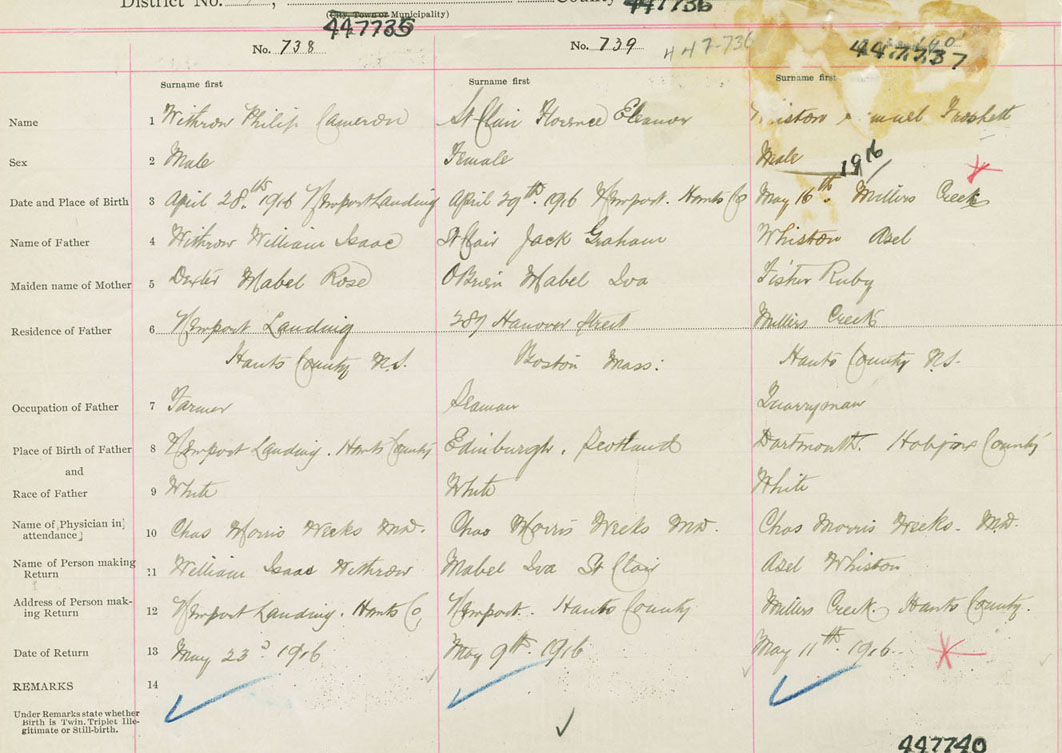 District No.
County
(City, Town or Municipality)
447736
447735
No. 738
No. 739
447-736
447737
Surname first
Surname first
Surname first
Name 1 Withrow Philip Cameron St Clair Florence Eleanor
Sex 2 Male Female Male
1916
Date and Place of Birth 3 April 28th 1916 Newport Landing April 29th 1916 Newport. Hants Co May 16th. Millers Creek
Name of Father 4 Withrow William Isaac St Clair Jack Graham Whiston Asel
Maiden name of Mother 5 Dexter Mabel Rose O'Brien Mabel Iva Fisher Ruby
Residence of Father 6 Newport Landing 287 Hanover Street Millers Creek
Hants County N.S. Boston Mass: Hants County N.S.
Occupation of Father 7 Farmer Seaman Quarryman
Place of Birth of Father 8 Newport Landing. Hants County Edinburgh, Scotland Dartmouth. Halifax County
and
Race of Father 9 White White White
Name of [Physician in attendance] 10 Chas Morris Weeks M.D. Chas Morris Weeks M.D. Chas Morris Weeks. M.D.
Name of Person making Return 11 William Isaac Withrow Mabel Iva St Clair Asel Whiston
Address of Person making Return 12 Newport Landing. Hants Co, Newport. Hants County Millers Creek, Hants County.
Date of Return 13 May 23d 1916 May 9th. 1916 May 11th. 1916
REMARKS 14
Under Remarks state whether
Birth is Twin, Triplet Ille-
gitimate or Still-birth.
447740